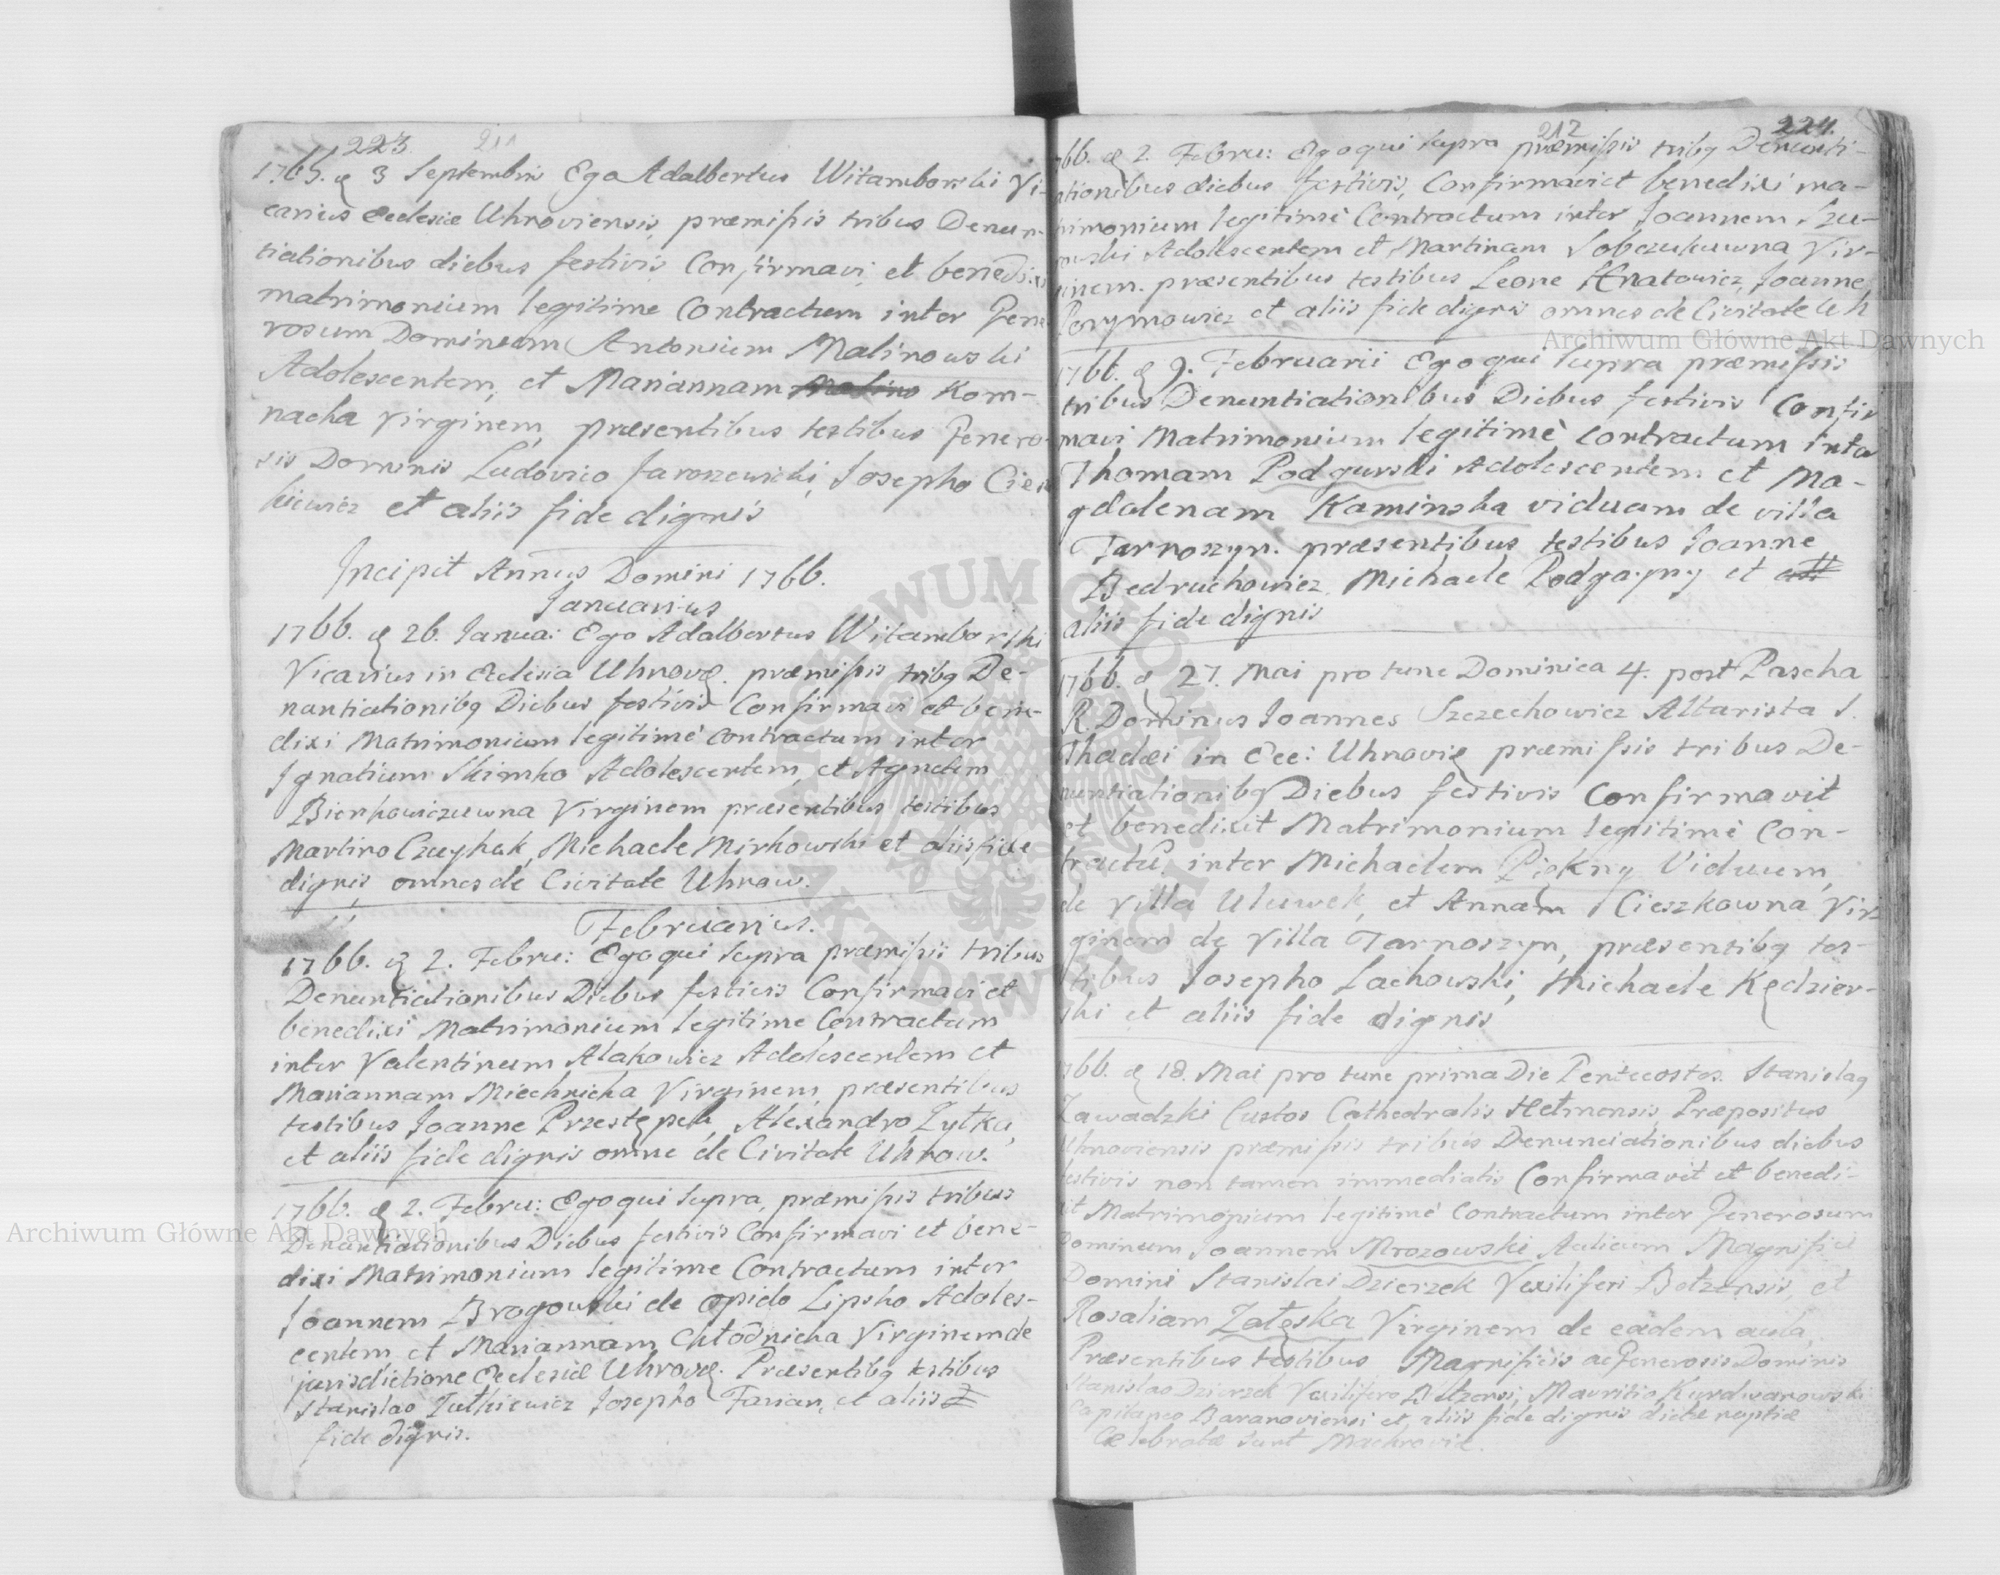 223 211
1765. d 3 Septembris Ego Adalbertus Witamborski Vi-
carius Ecclesiæ Uhnoviensis, præmissis tribus Denun-
tiationibus diebus festivis Confirmavi et benedixi
matrimonium legitime Contractum inter Gene
rosum Dominum Antonium Malinowski
Adolescentem, et Mariannam Kom-
nacka Virginem, præsentibus testibus Genero-
sis Dominis Ludovico Jaroszewski, Josepho
kiewicz et aliis fide dignis
Incipit Annus Domini 1766.
Januarius
1766. d 26. Janua: Ego Adalbertus Witamborski
Vicarius in Eclesia Uhnovę. præmissis tribq De-
nantiationibq Diebus festivis Confirmavi et bene-
dixi Matrimonium legitimè contractum inter
Ignatium Skimko Adolescentem, et Agnetem
Bienkowiczuwna Virginem præsentibus testibus
Martino Czuyhak, Michaele Mirkowski et aliis fide
dignis, omnes de Civitate Uhnow.
Februarius.
1766. d 2. Febru: Ego qui supra præmissis tribus
Denuntiationibus Diebus festivis Confirmavi et
benedixi Matrimonium legitime Contractum
inter Valentinum Atakowicz Adolescentem et
Mariannam Miechnicka Virginem, præsentibus
testibus Joanne Przestępek, Alexandro Zytka,
et aliis fide dignis omne de Civitate Uhnow.
1766. d 2. Febru: Ego qui supra, præmissis tribus
Denuntiationibus Diebus festivis Confirmavi et bene-
dixi Matrimonium legitime Contractum inter
Joannem Brogowski de opido Lipsko Adoles-
centem et Mariannam Chłodnicka Virginem de
jurisdictione Ecclesiæ Uhnovę. Præsentibq testibus
Stanislao Zutkiewicz Josepho Farian, et aliis
fide dignis.
212 224.
766. d 2. Febru: Ego qui supra præmissis tribq Denunti-
ationibus diebus festivis, Confirmavi et benedixi ma-
trimonium legitimè Contractum inter Joannem Szu-
mowski Adolescentem et Martinam Sobczukuwna Vir-
ginem. præsentibus testibus Leone Hnatowicz, Joanne
Porymowicz et aliis fide dignis omnes de Civitate Uh
1766. d 9. Februarii Ego qui supra præmissis
tribus Denuntiationibus Diebus festivis Confir
mavi Matrimonium legitimè contractum inter
Thomam Podgurski Adolescentem et Ma-
gdalenam Kaminska viduam de villa
Tarnoszyn. præsentibus testibus Joanne
Bedruchowicz Michaele Podgayny et
aliis fide dignis
1766. d 27. Mai pro tunc Dominica 4. post Pascha
R. Dominus Joannes Szczechowicz Altarista S.
Thadæi in Ecc: Uhnovię præmissis tribus De-
nuntiationibq Diebus festivis Confirmavit
et benedixit Matrimonium legitimè Con-
tractũ inter Michaelem Piękny Viduum,
de villa Uluwek, et Annam Cieszkowna Vir
ginem de Villa Tarnoszyn, præsentibq tes-
tibus Josepho Lachowski, Michaele Kędzier-
ski et aliis fide dignis
1766. d 18. Mai pro tunc prima Die Pentecostes. Stanislaq
Zawadzki Custos Cathedralis Hełmensis, Præpositus
Uhnoviensis præmissis tribus Denunciationibus diebus
festivis non tamen immediatis Confirmavit et benedi-
xit Matrimonium legitimè contractum inter Generosum
Dominum Joannem Mrozowski Aulicum Magnifici
Domini Stanislai Dzierzek Vexiliferi Bełzensis, et
Rosaliam Załęska Virginem de eadem aula,
Præsentibus testibus Magnificis ac Generosis Dominis
Stanislao Dzierzek Vexilifero Belzensi, Mauritio Kurdwanowski
Capitaneo Baranoviensi et aliis fide dignis dictæ nuptiæ
Cælebratæ sunt Machnoviæ.
Archiwum Główne Akt Dawnych
Archiwum Główne Akt Dawnych
ARCHIWUM GŁÓWNE AKT DAWNYCH